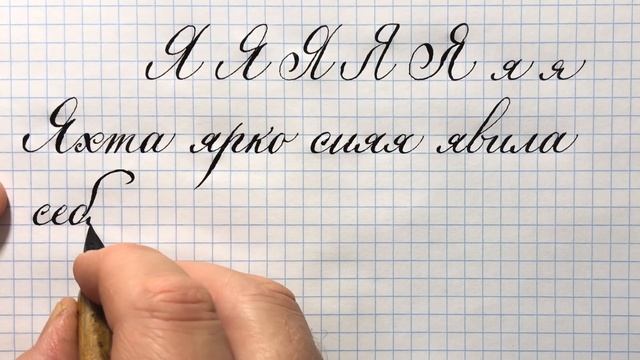 Я Я Я Я Я я я
Яхта ярко сияя явила
себ